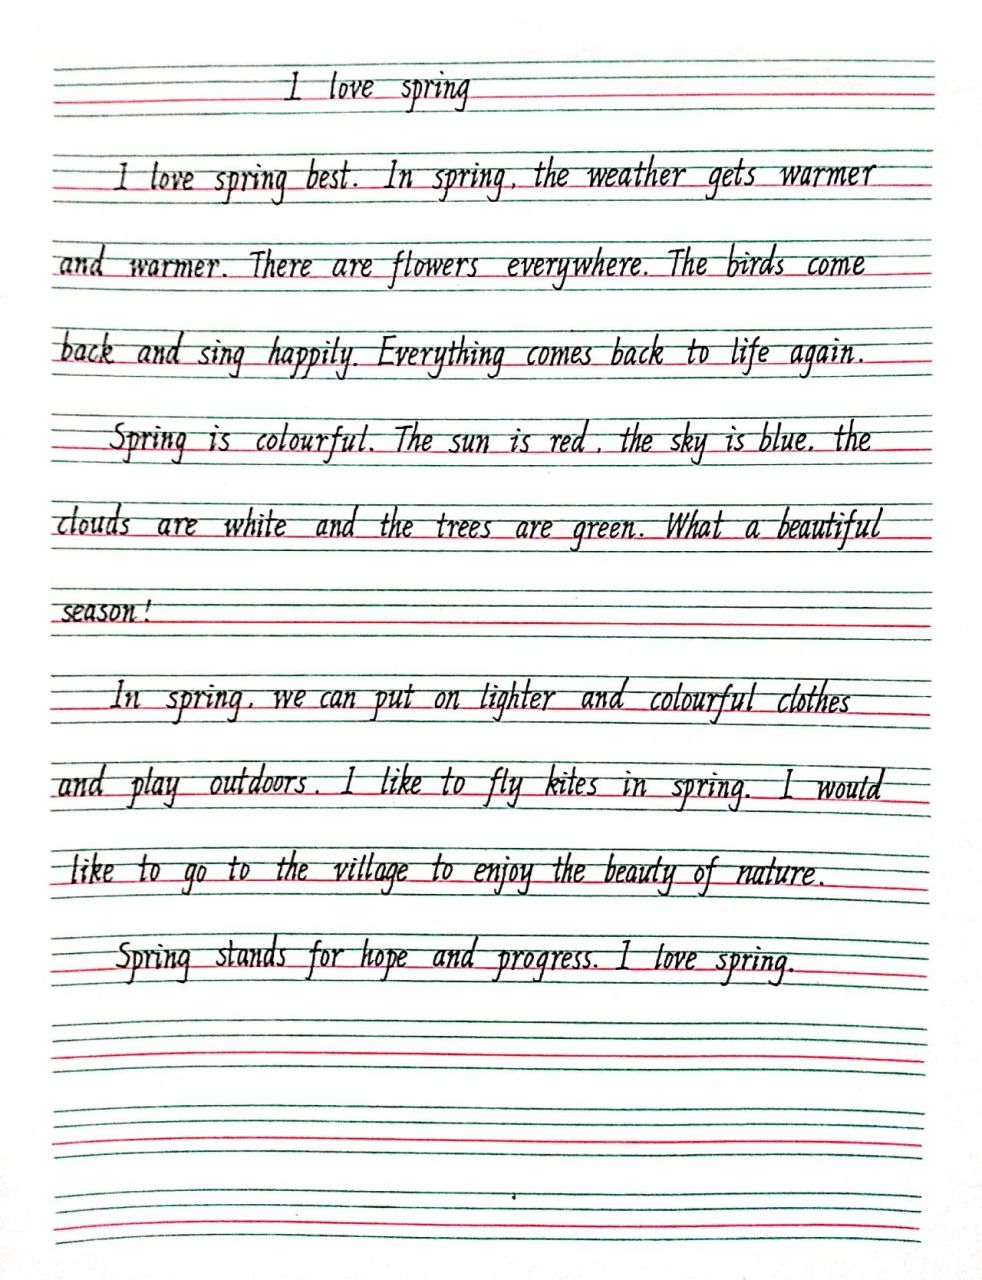 I love spring
I love spring best. In spring, the weather gets warmer
and warmer. There are flowers everywhere. The birds come
back and sing happily. Everything comes back to life again.
Spring is colourful. The sun is red, the sky is blue, the
clouds are white and the trees are green. What a beautiful
season!
In spring, we can put on lighter and colourful clothes
and play outdoors. I like to fly kites in spring. I would
like to go to the village to enjoy the beauty of nature.
Spring stands for hope and progress. I love spring.